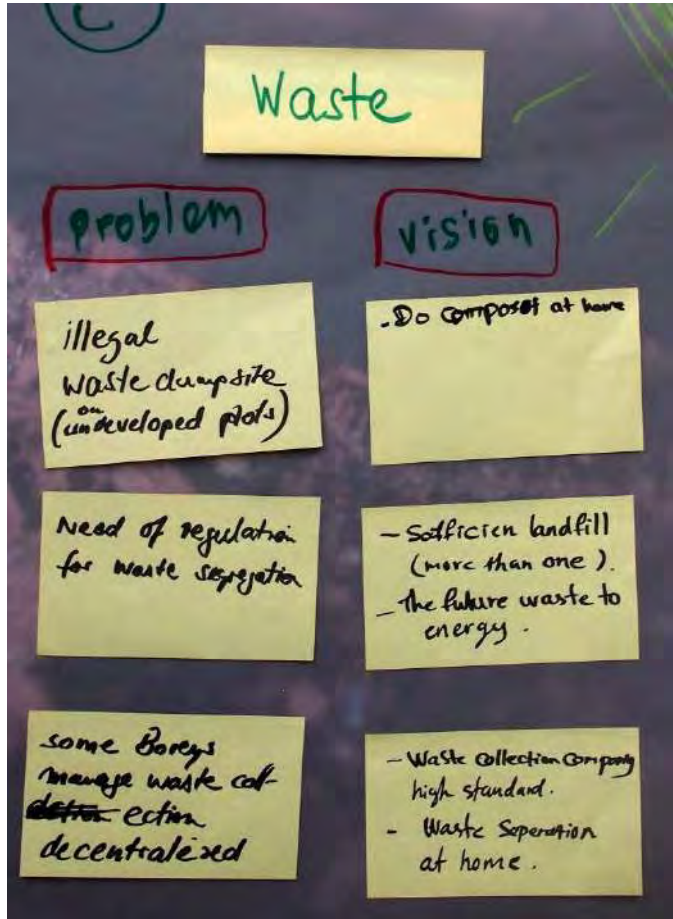 Waste
problem
illegal
waste dumpsite
on
(undeveloped plots)
Need of regulation
for waste segregation
some Boreys
manage waste coll-
ection
decentralized
vision
- Do compost at home
- Sufficien landfill
(more than one).
- The future waste to
energy.
- Waste Collection Company
high standard.
- Waste Seperation
at home.